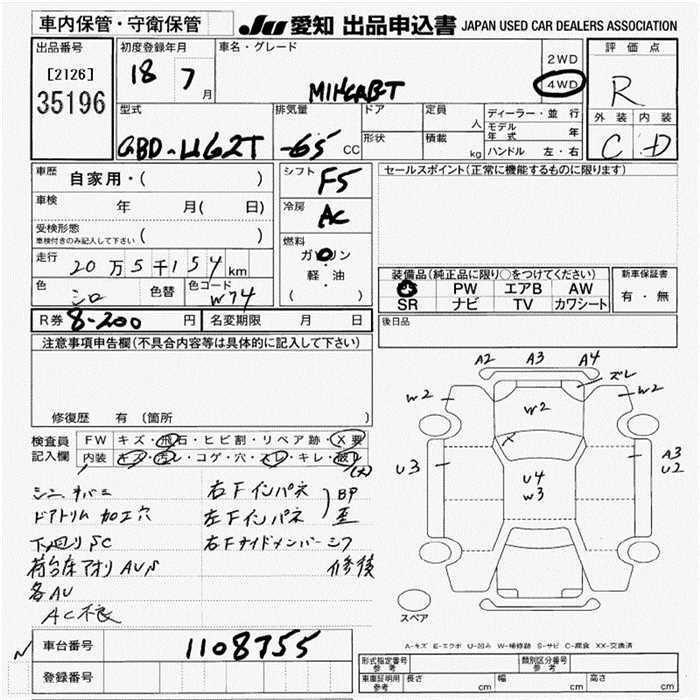 車内保管・守衛保管
JU 愛知 出品申込書 JAPAN USED CAR DEALERS ASSOCIATION
出品番号
[2126]
35196
初度登録年月
18 7 月
車名・グレード
MINICAB-T
2WD
4WD
評価点
R
外装 内装
C D
型式
GBD-U62T
排気量
-65 CC
ドア
形状
定員 人
積載 kg
ディーラー・並行
モデル年式 年
ハンドル 左・右
車歴 自家用・( )
車検 年 月( 日)
受検形態
車検付きのみ記入して下さい ( )
走行 20万5千154km
色 シロ
色替
色コード W74
シフト F5
冷房 AC
燃料
ガソリン
軽・油
( )
セールスポイント(正常に機能するものに限ります)
装備品(純正品に限り○をつけてください)
PS PW エアB AW
SR ナビ TV カワシート
新車保証書
有・無
R券 8-200 円 名変期限 月 日
後日品
注意事項申告欄(不具合内容等は具体的に記入して下さい)
修復歴 有 (箇所 )
検査員
記入欄
FW キズ・飛石・ヒビ割・リペア跡・X要
内装 キズ・汚レ・コゲ・穴・スレ・キレ・破レ
(大)
右Fインパネ
ドアトリム加工穴 左Fインパネ
BP
歪
下回りSC 右Fサイドメンバー
修後
荷台床アオリAUS
各AU
AC不良
A2 A3 A4
ズレ
W2 W2
W2
X
U3
U4
W3
A3
U2
スペア
A-キズ E-エクボ U-凹み W-補修跡 S-サビ C-腐食 XX-交換済
車台番号 1108755
登録番号
形式指定番号 参考
類別区分番号 参考
車庫証明用 参考 長さ cm 幅 cm 高さ cm